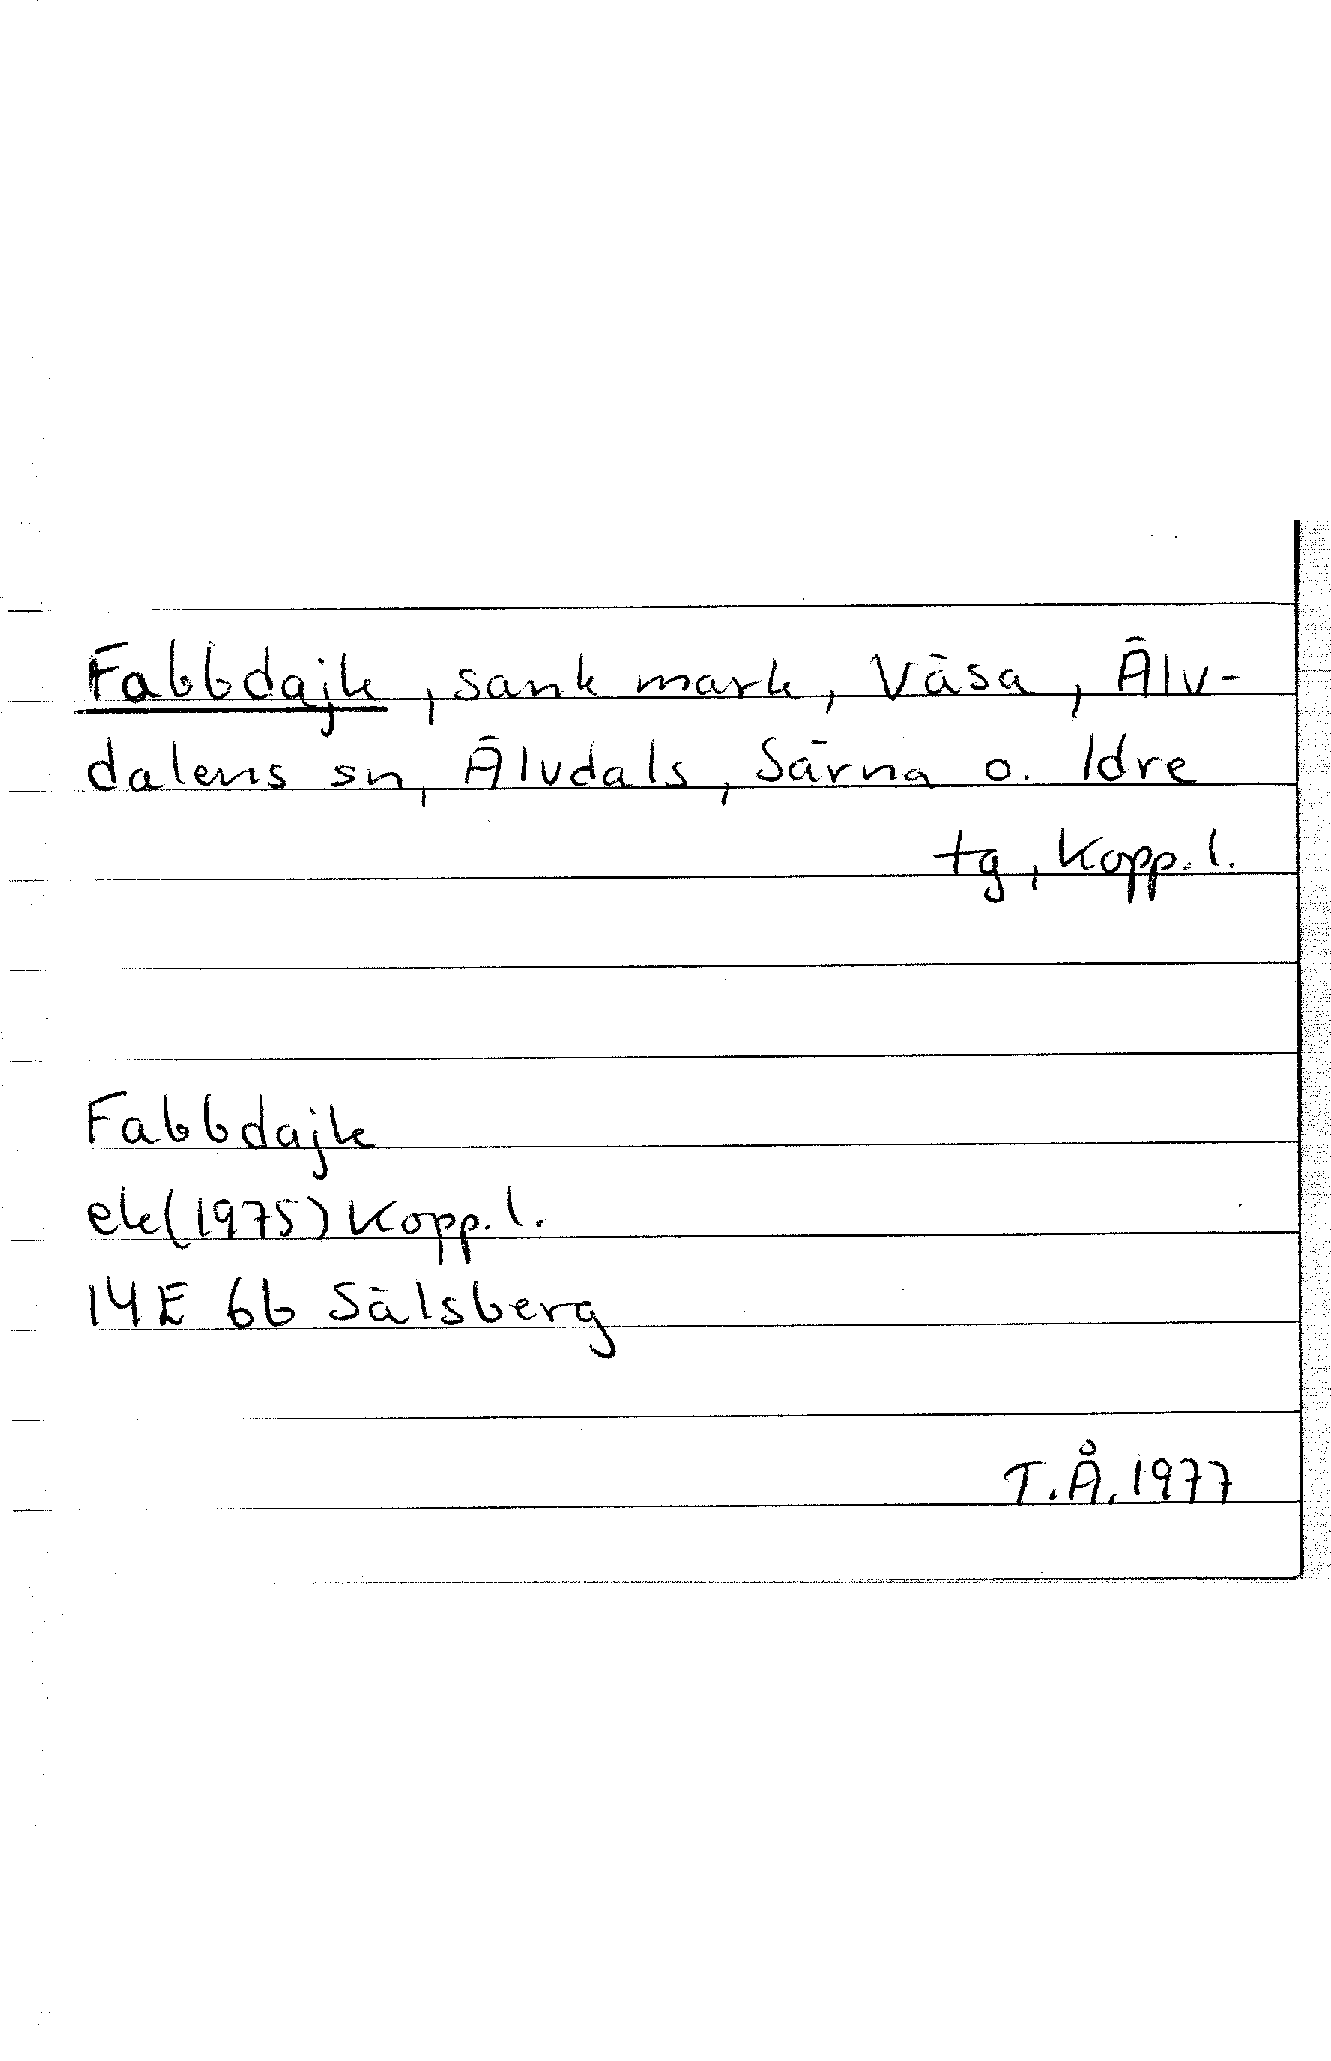 Fabbdajk, sank mark, Väsa, Älv-
dalens sn, Älvdals, Särna o. Idre
tg, Kopp. l.
Fabbdajk
ek(1975) Kopp. l.
14E 6b Sälsberg
T.Å. 1977